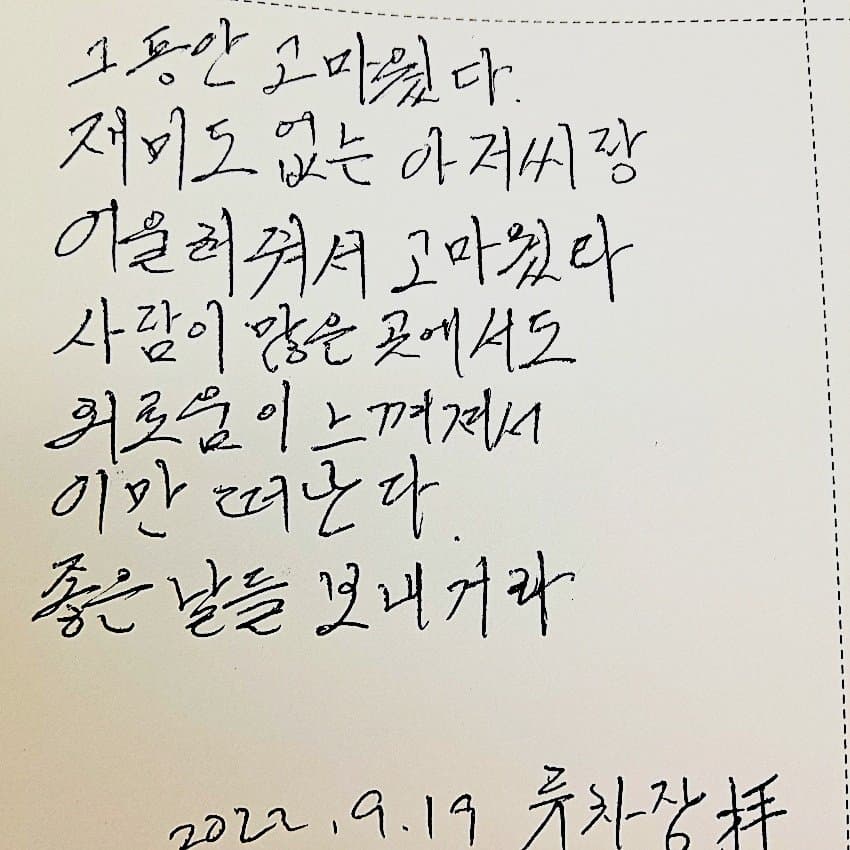 그동안 고마웠다.
재미도 없는 아저씨랑
어울려줘서 고마웠다
사람이 많은 곳에서도
외로움이 느껴져서
이만 떠난다.
좋은 날들 보내거라
2022.9.19 류차장 拜